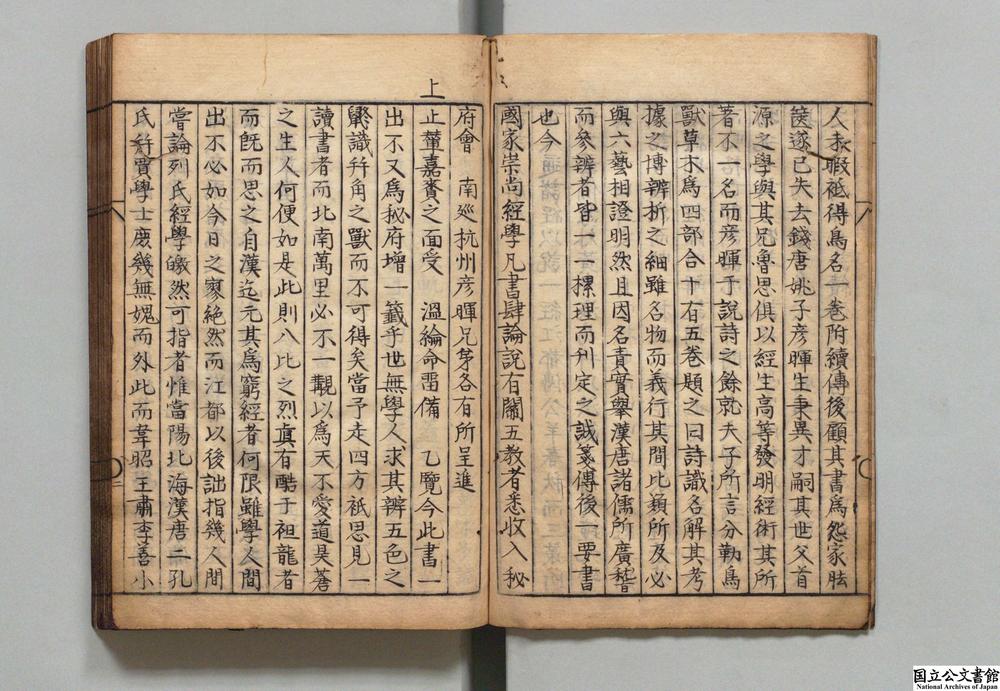 人來暇祗得鳥名一卷附續傳後顧其書爲怨家胠
篋遂已失去錢唐姚子彦暉生秉異才嗣其世父首
源之學與其兄魯思俱以經生高等發明經術其所
著不一名而彦暉于說詩之餘就夫子所言分勒鳥
獸草木爲四部合十有五卷題之曰詩識名解其考
據之博辨析之細雖名物而義行其間比類所及必
與六藝相證明然且因名責實舉漢唐諸儒所廣稽
而參辨者皆一一標理而刋定之誠箋傳後一要書
也今
國家崇尚經學凡書肆論說有關五教者悉收入秘
府會 南廵杭州彦暉兄苐各有所呈進
上
止輦嘉賚之面受 溫綸命留備 乙覽今此書一
出不又爲秘府增一籤乎世無學人求其辨五色之
識幷角之獸而不可得矣當予走四方祇思見一
讀書者而北南萬里必不一覯以爲天不愛道昊蒼
之生人何便如是此則八比之烈眞有酷于祖龍者
而旣而思之自漢迄元其爲窮經者何限雖學人間
出不必如今日之寥絶然而江都以後詘指幾人間
嘗論列氏經學皦然可指者惟當陽北海漢唐二孔
氏幷賈學士庻幾無媿而外此而韋昭王肅李善小
国立公文書館
National Archives of Japan